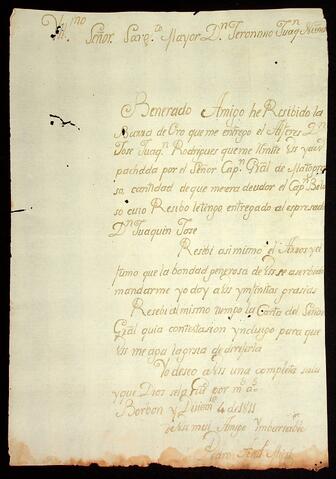 Yll.mo Señor. Sarg.to Mayor D.n Jeronimo Juaq.n Nunes
Benerado Amigo he Resibido la
Barra de Oro que me entrego el Alferes D.n
Jose Juaq.n Rodrigues que me Remite Us y des
pachada por el Señor Cap.n Gral de Matogro
so, cantidad de que me era deudor el Cap.n
so cuio Resibo le tengo entregado al espresado
D.n Juaquin Jose
Resibi asi mismo el Arros y el
fumo que la bondad generosa de Us se a serbido
mandarme yo doy a Us ynfinitas grasias
Resibi al mismo tiempo la Carta del Señor
Gral guia contestasion yncluyo para que
Us me aga la grasia de dirijirla
Yo deseo a Us una completa salu
y que Dios
Borbon y 4 de 1811
de Us muy Amigo ymbariable